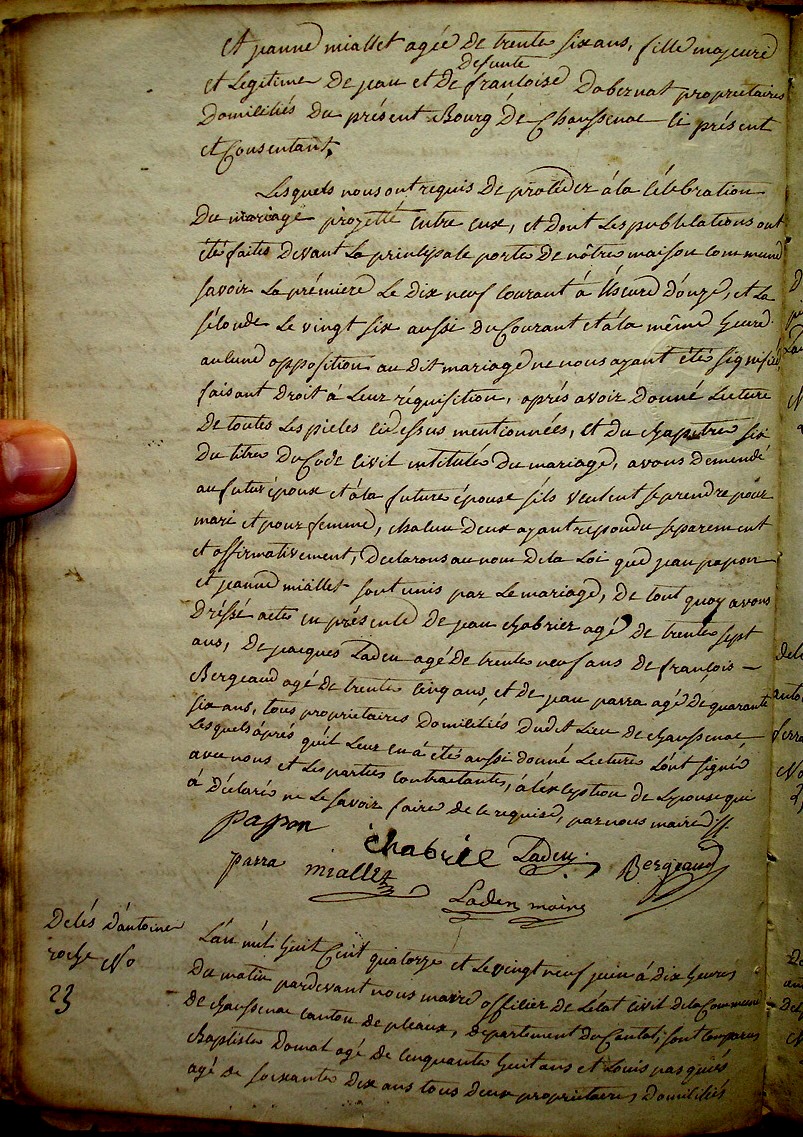 et jeanne miallet agée de trente six ans, fille majeure
defunte
et Legitime de jean et de francoise Dabernat proprietaires
Domiciliés du présent Bourg de Chaussenac ci présent
et Consentant,
Lesquels nous ont requis de procéder à la Célébration
du mariage projetté entre eux, et dont Les publications ont
été faites devant La principale porte de nôtre maison commune
savoir La première Le dix neuf courant à L'heure d'onze, et La
séconde Le vingt six aussi du Courant et à la même heure
aucune opposition au dit mariage ne nous ayant été signifiée,
faisant droit à Leur réquisition, après avoir donné Lecture
de toutes Les pieces ci dessus mentionnées, et du chapitre six
du titre du Code Civil intitulé du mariage, avons demandé
au futur époux et à la future épouse s'ils veulent se prendre pour
mari et pour femme, chacun deux ayant répondu séparement
et affirmativement, Declarons au nom de la Loi que jean papon
et jeanne miallet sont unis par Le mariage, de tout quoy avons
Dréssé acte en présence de jean chabriez agé de trente sept
ans, de jacques Laden agé de trente neuf ans de françois
Bergeaud agé de trente cinq ans, et de jean parra agé de quarante
six ans, tous proprietaires Domiciliés dudit Lieu de chaussenac
Lesquels après qu'il Leur en a été aussi donné Lecture L'ont signé
avec nous et Les parties contractantes, à L'éxception de L'épouse qui
à Déclaré ne Le savoir faire de ce requise, par nous maire
papon
chabriè Laden Bergeaud
parra miallet
Laden maire
Décès d'antoine
roche No
23
L'an mil huit Cent quatorze et Le vingt neuf juin à dix heures
du matin pardevant nous maire officier de L'état Civil de la Commune
de chaussenac canton de pleaux, département du Cantal, sont comparus
Baptiste Domat agé de cinquante huit ans et Louis pasquiés
agé de soixante dix ans tous deux proprietaires Domiciliés